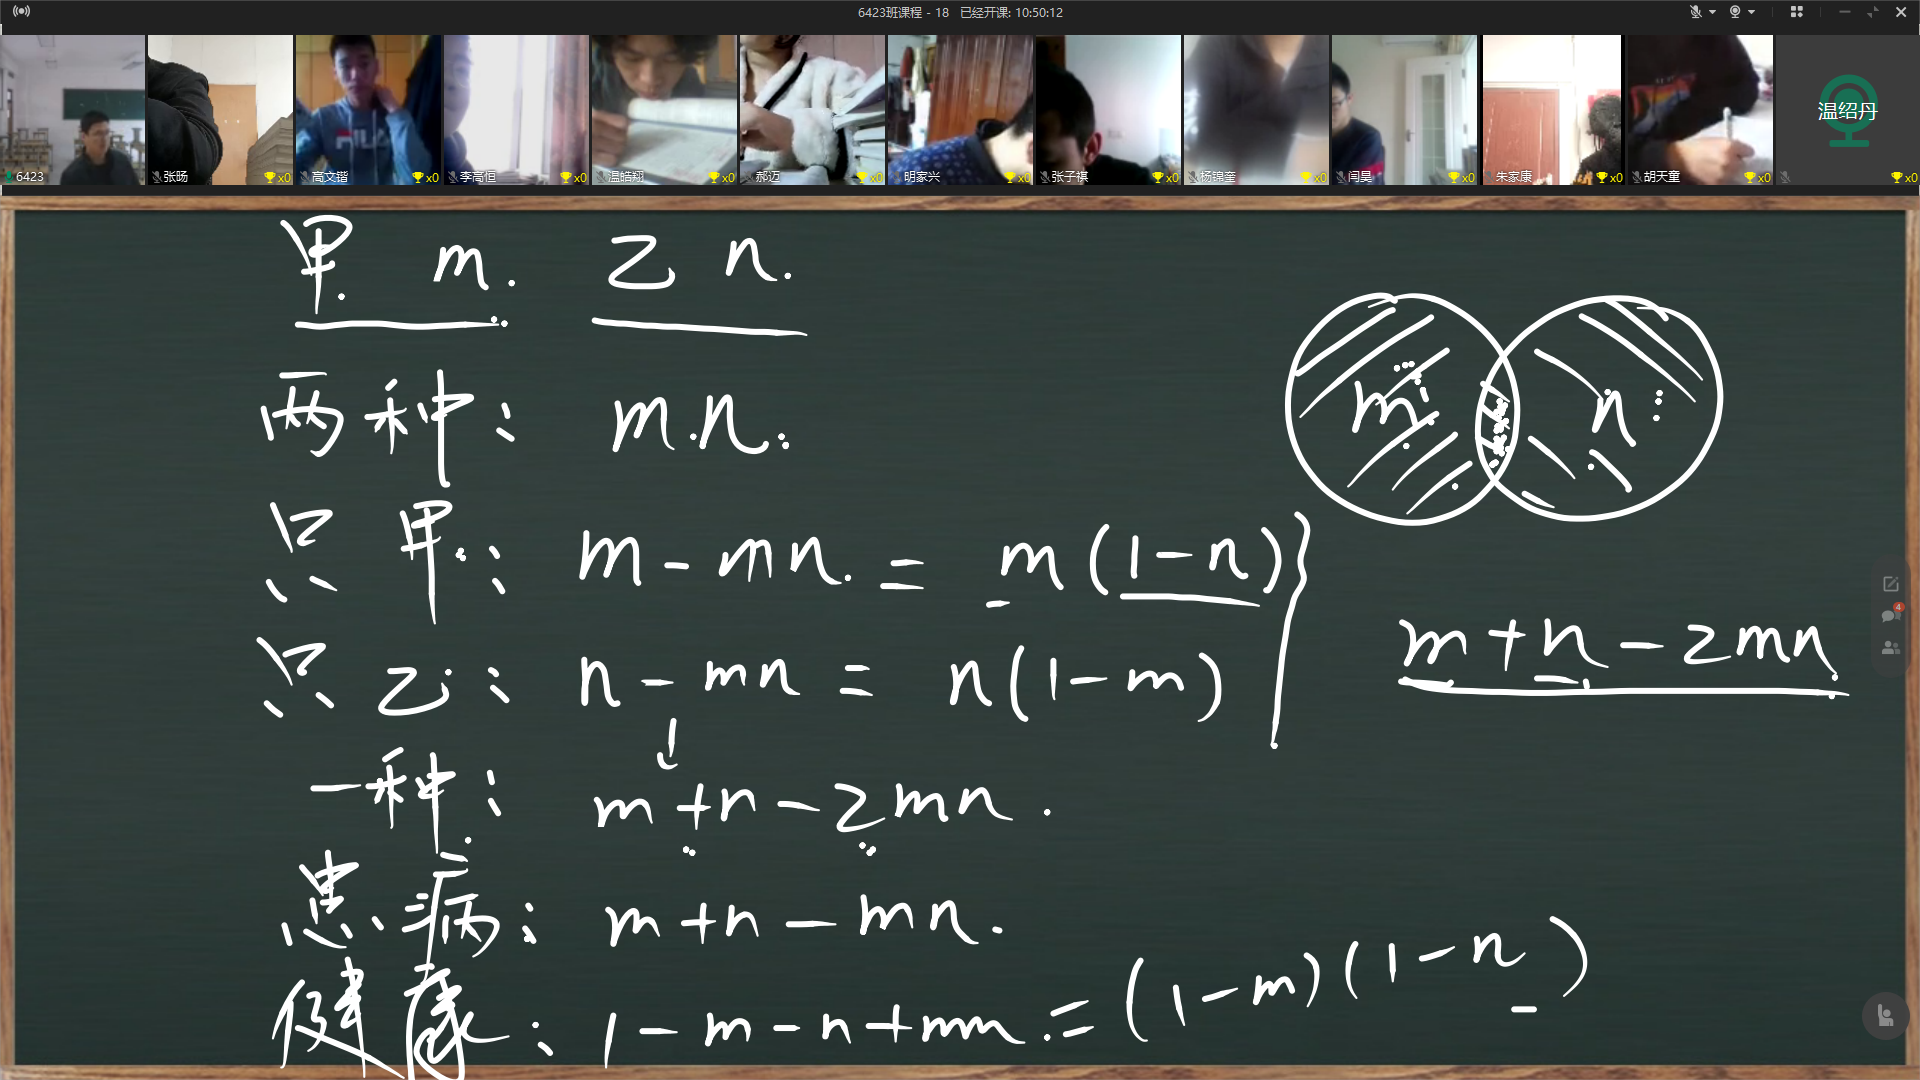 6423班课程 - 18 已经开课: 10:50:12
6423
张旸 x0
高文锴 x0
李高恒 x0
温皓翔 x0
郝迈 x0
明家兴 x0
张子祺 x0
杨锦奎 x0
闫昊 x0
朱家康 x0
胡天童 x0
温绍丹 x0
甲 m. 乙 n.
m n
两种: m.n.
只甲: m - mn. = m(1-n)
只乙: n - mn = n(1-m)
m+n-2mn
4
一种: m+n-2mn.
患病: m+n-mn.
健康: 1-m-n+mn.=(1-m)(1-n)